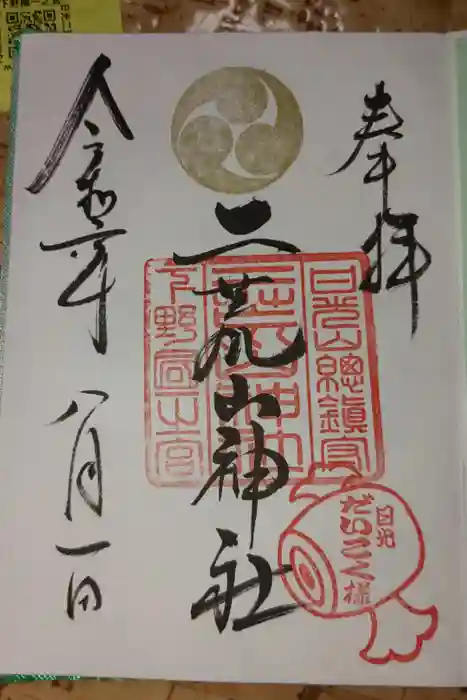 奉拝
日光山總鎮守
二荒山神社
二荒山神社
下野國一之宮
令和二年
八月一日
日光
だいこく様